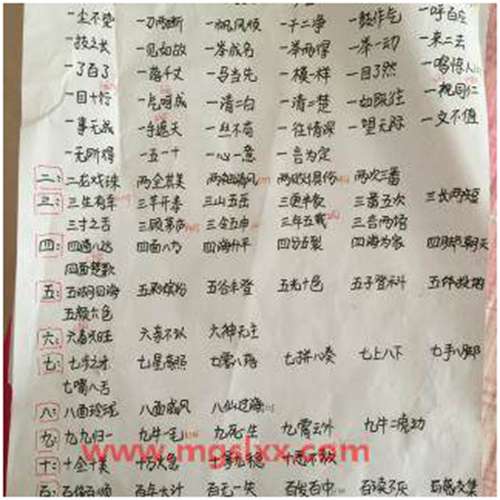 一尘不染 一刀两断 一帆风顺 一干二净 一鼓作气 一呼百应
一技之长 一见如故 一举成名 一举两得 一举一动 一来二去
一了百了 一落千丈 一马当先 一模一样 一目了然 一鸣惊人
一目十行 一气呵成 一清二白 一清二楚 一如既往 一视同仁
一事无成 一手遮天 一丝不苟 一往情深 一望无际 一文不值
一无所得 一五一十 一心一意 一言为定
二: 二龙戏珠 两全其美 两袖清风 两败俱伤 两次三番
三: 三生有幸 三羊开泰 三山五岳 三更半夜 三番五次 三长两短
三寸之舌 三顾茅庐 三令五申 三年五载 三言两语
四: 四通八达 四面八方 四海升平 四分五裂 四海为家 四脚朝天
四面楚歌
五: 五湖四海 五彩缤纷 五谷丰登 五光十色 五子登科 五体投地
五颜六色
六: 六畜兴旺 六亲不认 六神无主
七: 七步之才 七星高照 七零八落 七拼八凑 七上八下 七手八脚
七嘴八舌
八: 八面玲珑 八面威风 八仙过海
九: 九九归一 九牛一毛 九死一生 九霄云外 九牛二虎功
www.mgslxx.com
十: 十全十美 十万火急 十拿九稳 十恶不赦
百: 百依百顺 百年大计 百无一失 百发百中 百读不厌 百感交集